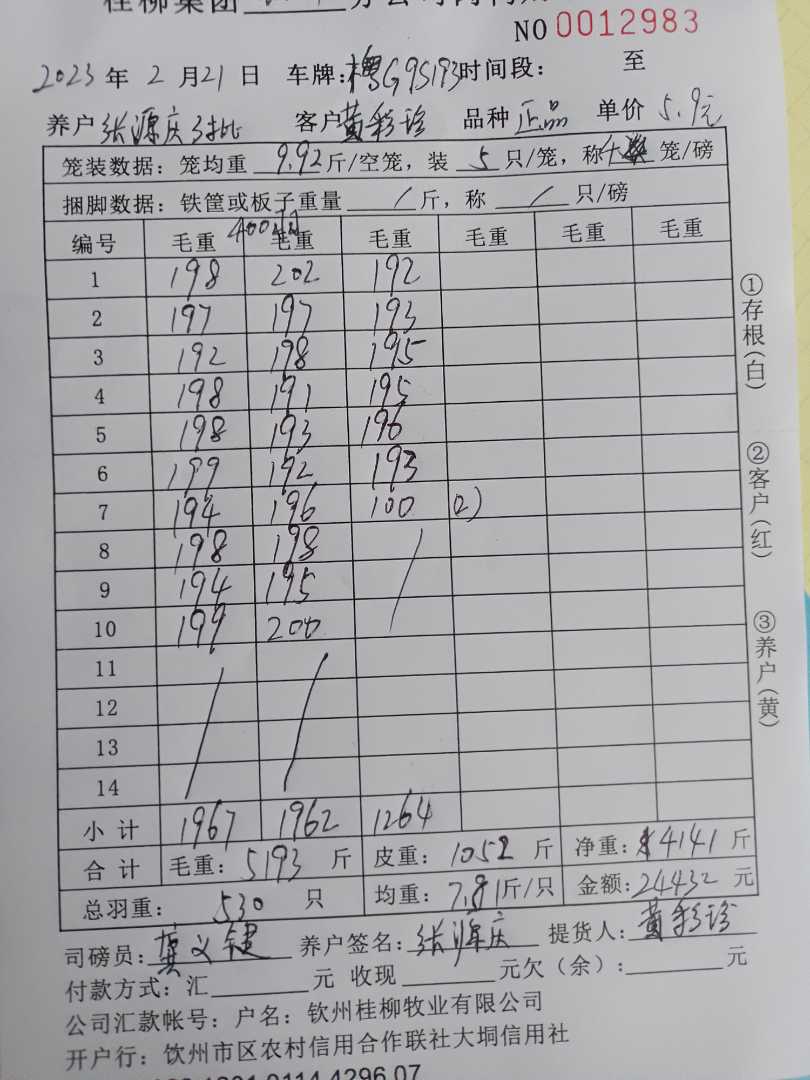 桂柳集团
NO 0012983
2023 年 2 月 21 日 车牌: G9S193 时间段: 至
养户 张源庆 3批 客户 黄彩珍 品种 正品 单价 5.9元
笼装数据: 笼均重 9.92 斤/空笼, 装 5 只/笼, 称 笼/磅
捆脚数据: 铁筐或板子重量 / 斤, 称 / 只/磅
编号 毛重 毛重 毛重 毛重 毛重 毛重
1 198 202 192
2 197 197 193
3 192 198 195
4 198 191 195
5 198 193 196
6 199 192 193
7 194 196 100
8 198 198 /
9 194 195
10 199 200
11 / /
12
13
14
小计 1967 1962 1264
合计 毛重: 5193 斤 皮重: 1052 斤 净重: 4141 斤
总羽重: 530 只 均重: 7.81 斤/只 金额: 24432 元
司磅员: 龚义键 养户签名: 张源庆 提货人: 黄彩珍
付款方式: 汇 元 收现 元欠(余): 元
公司汇款帐号: 户名: 钦州桂柳牧业有限公司
开户行: 钦州市区农村信用合作联社大垌信用社
0114 4296 07
①存根(白)
②客户(红)
③养户(黄)